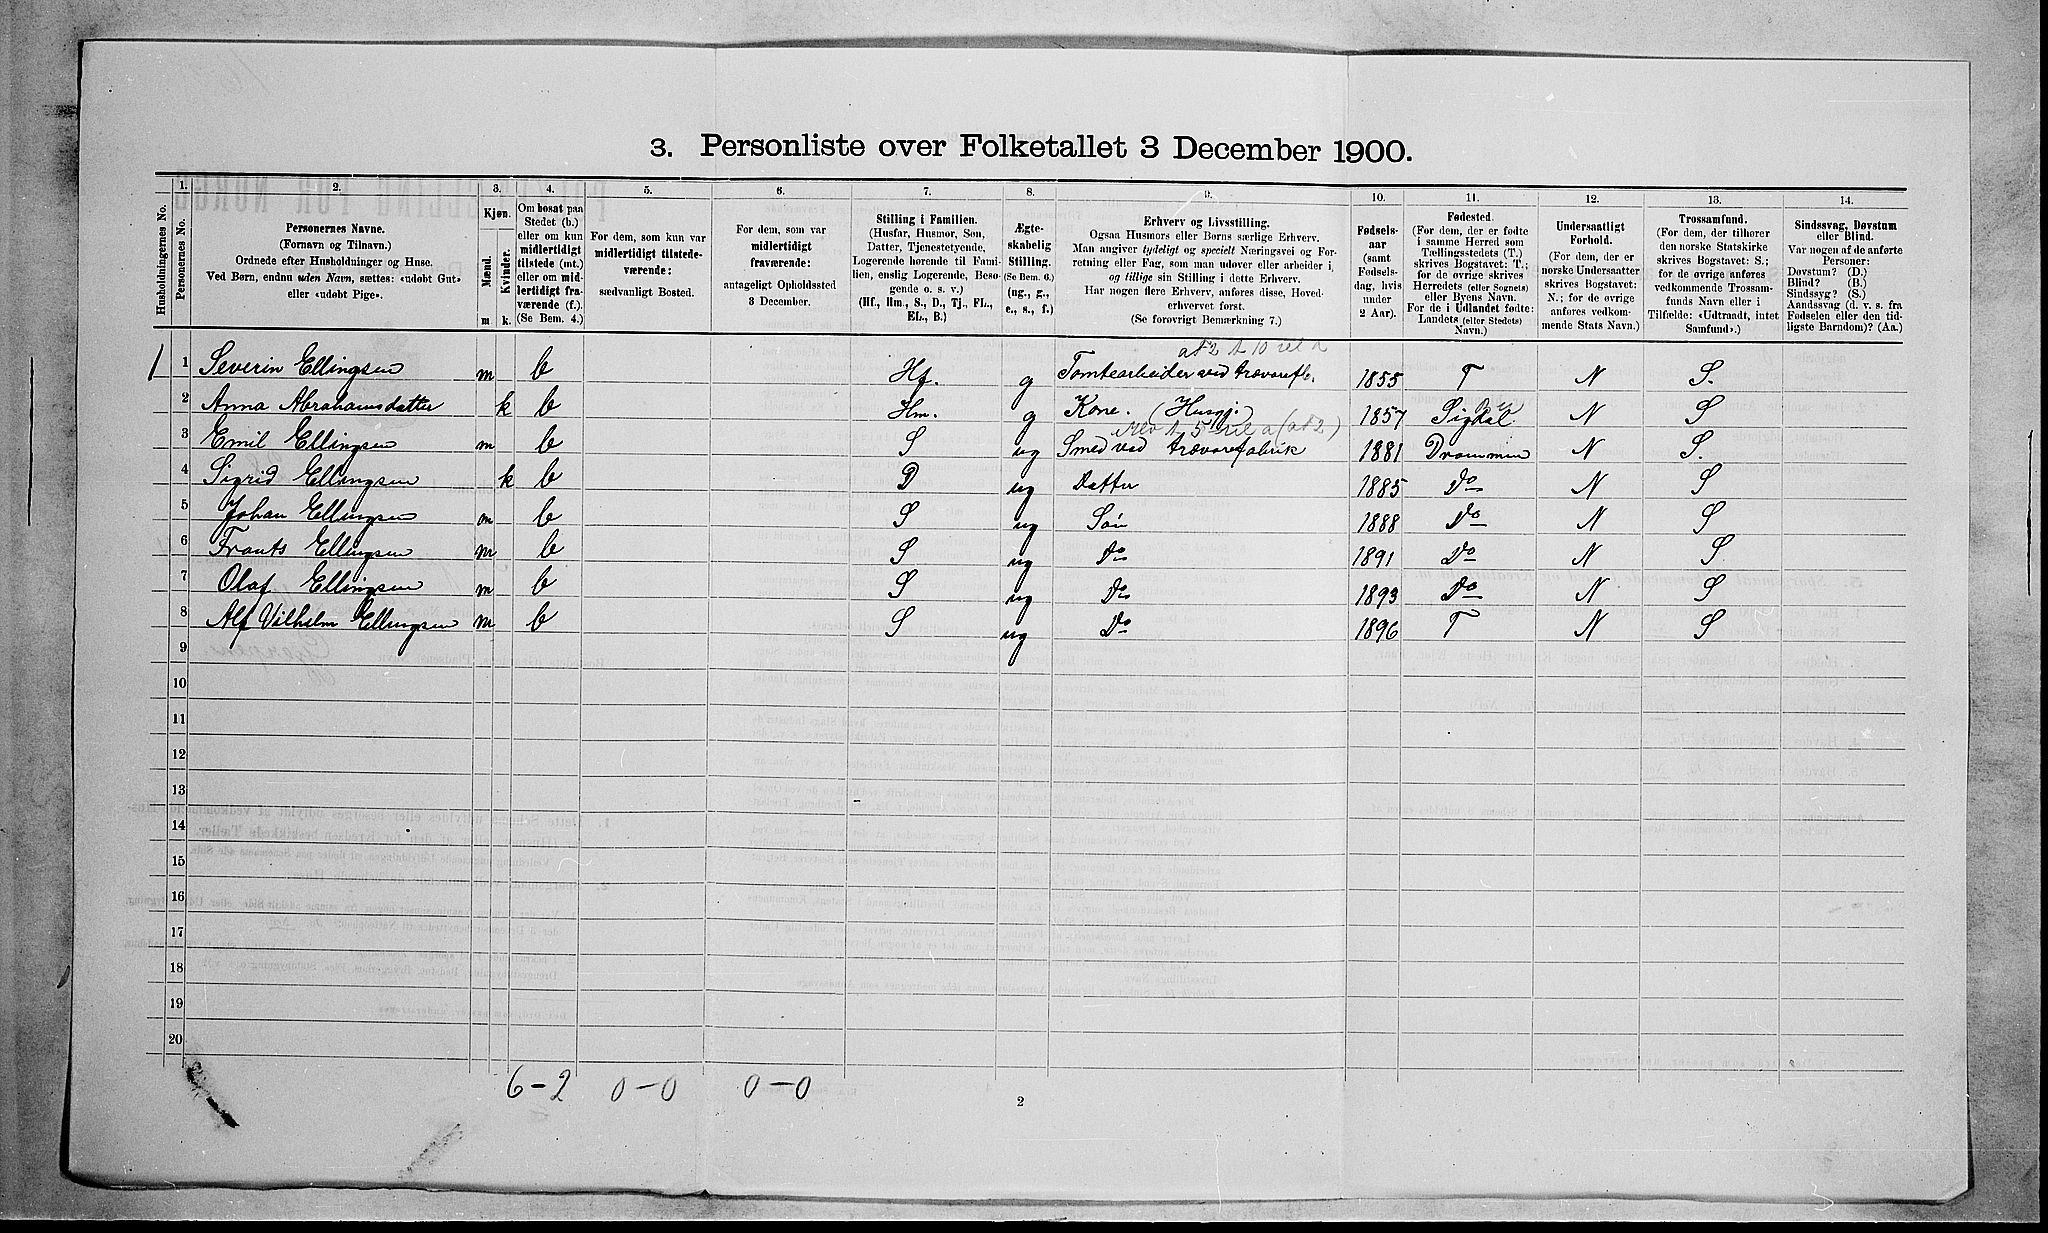 3. Personliste over Folketallet 3 December 1900.
Husholdningernes No.
1. Personernes No.
2. Personernes Navne.
(Fornavn og Tilnavn.)
Ordnede efter Husholdninger og Huse.
Ved Børn, endnu uden Navn, sættes: «udøbt Gut»
eller «udøbt Pige».
3. Kjøn.
Mænd. Kvinder.
m. k.
4. Om bosat paa
Stedet (b.)
eller om kun
midlertidigt
tilstede (mt.)
eller om mid-
lertidigt fra-
værende (f.).
(Se Bem. 4.)
5. For dem, som kun var
midlertidigt tilstede-
værende:
sædvanligt Bosted.
6. For dem, som var
midlertidigt
fraværende:
antageligt Opholdssted
3 December.
7. Stilling i Familien.
(Husfar, Husmor, Søn,
Datter, Tjenestetyende,
Logerende hørende til Fami-
lien, enslig Logerende, Besø-
gende o. s. v.)
(Hf., Hm., S., D., Tj., FL.,
EL., B.)
8. Ægte-
skabelig
Stilling.
(Se Bem. 6.)
(ug., g.,
e., s., f.)
9. Erhverv og Livsstilling.
Ogsaa Husmors eller Børns særlige Erhverv.
Man angiver tydeligt og specielt Næringsvei og For-
retning eller Fag, som man udøver eller arbeider i,
og tillige sin Stilling i dette Erhverv.
Har nogen flere Erhverv, anføres disse, Hoved-
erhvervet først.
(Se forøvrigt Bemærkning 7.)
10. Fødsels-
aar
(samt
Fødsels-
dag, hvis
under
2 Aar).
11. Fødested.
(For dem, der er fødte
i samme Herred som
Tællingsstedets (T.)
skrives Bogstavet: T.;
for de øvrige skrives
Herredets (eller Sognets)
eller Byens Navn.
For de i Udlandet fødte:
Landets (eller Stedets)
Navn.)
12. Undersaatligt
Forhold.
(For dem, der er
norske Undersaatter
skrives Bogstavet:
N.; for de øvrige
anføres vedkom-
mende Stats Navn.)
13. Trossamfund.
(For dem, der tilhører
den norske Statskirke
skrives Bogstavet: S.;
for de øvrige anføres
vedkommende Trossam-
funds Navn eller i
Tilfælde: «Udtraadt, intet
Samfund».)
14. Sindssvag, Døvstum
eller Blind.
Var nogen af de anførte
Personer:
Døvstum? (D.)
Blind? (B.)
Sindssyg? (S.)
Aandssvag (d. v. s. fra
Fødselen eller den tid-
ligste Barndom)? (Aa.)
1 1 Severin Ellingsen m b Hf. g Tomtearbeider ved trævarefb. 1855 T N S.
2 Anna Abrahamsdatter k b Hm. g Kone. (Husgj.) 1857 Sigdal N S
3 Emil Ellingsen m b S ug Smed ved trævarefabrik 1881 Drammen N S.
4 Sigrid Ellingsen k b D ug Datter 1885 Do N S
5 Johan Ellingsen m b S ug Søn 1888 Do N S
6 Frants Ellingsen m b S ug Do 1891 Do N S
7 Olaf Ellingsen m b S ug Do 1893 Do N S
8 Alf Vilhelm Ellingsen m b S ug Do 1896 T N S
9
10
11
12
13
14
15
16
17
18
19
20
6-2 0-0 0-0
2